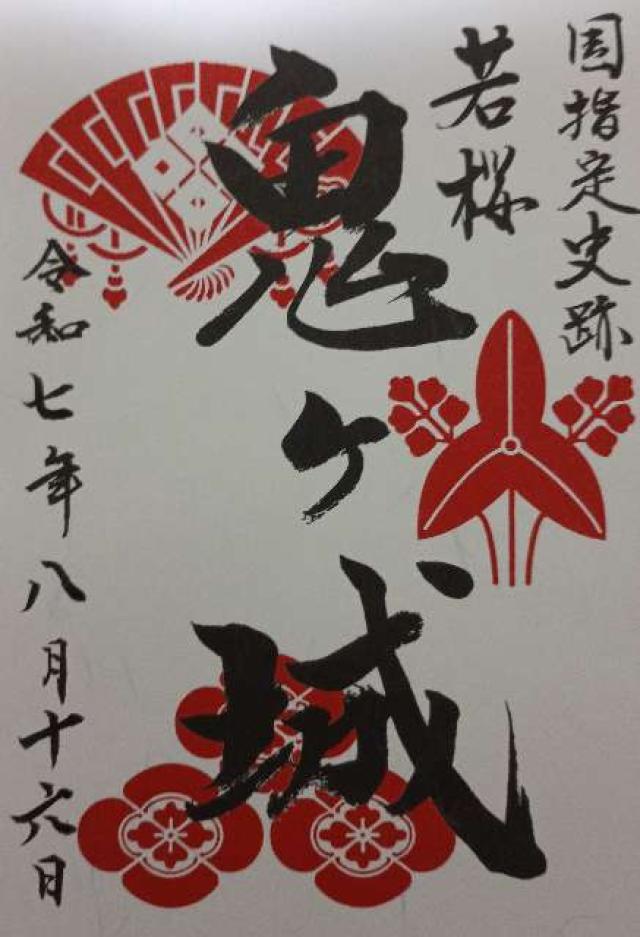 国指定史跡
若桜
鬼ヶ城
令和七年八月十六日